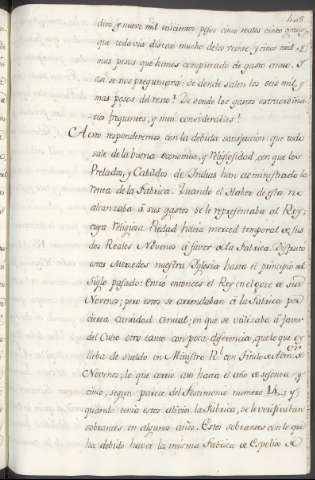 408
diez y nueve mil trescientos pesos cinco reales cinco granos
que todavia distan mucho de los veinte, y cinco mil, y
mas pesos que hemos computado de gasto anuo. Y
asi se nos preguntará: de donde salen los seis mil, y
mas pesos del resto? De donde los gastos extraordina-
rios frequentes, y muy considerables?
A esto responderemos con la debida satisfaccion: que todo
sale de la buena economia, y Religiosidad, con que los
Prelados, y Cabildos de Indias han administrado la
renta de la Fabrica. Quando el Haber de esta no
alcanzaba á sus gastos se le representaba al Rey;
cuya religiosa Piedad hacia merced temporal de sus
dos Reales Novenos á favor de la Fabrica. Disfrutó
estas Mercedes nuestra Iglesia hasta el principio del
Siglo pasado: Entró entonces el Rey en el goce de sus
Novenos; pero estos se arrendaban á la Fabrica por
cierta cantidad anual; en que se utilizaba á favor
del Culto otro tanto con poca diferencia, que lo que se
lleba de sueldo un Ministro Rl. con titulo de
Novenos, lo que corrio aun hasta el año de sesenta, y
cinco, segun parece del Testimonio numero 14., y
quando tenia estos alivios la Fabrica, se le verificaban
sobrantes en algunos años. Estos sobrantes con lo que
ha debido haver la misma Fabrica de Espolios de